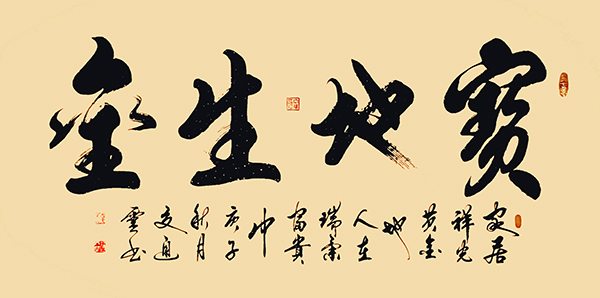 寶地生金
家居
祥光
黄金
地
人在
瑞
富貴
中
庚子
秋月
雲書